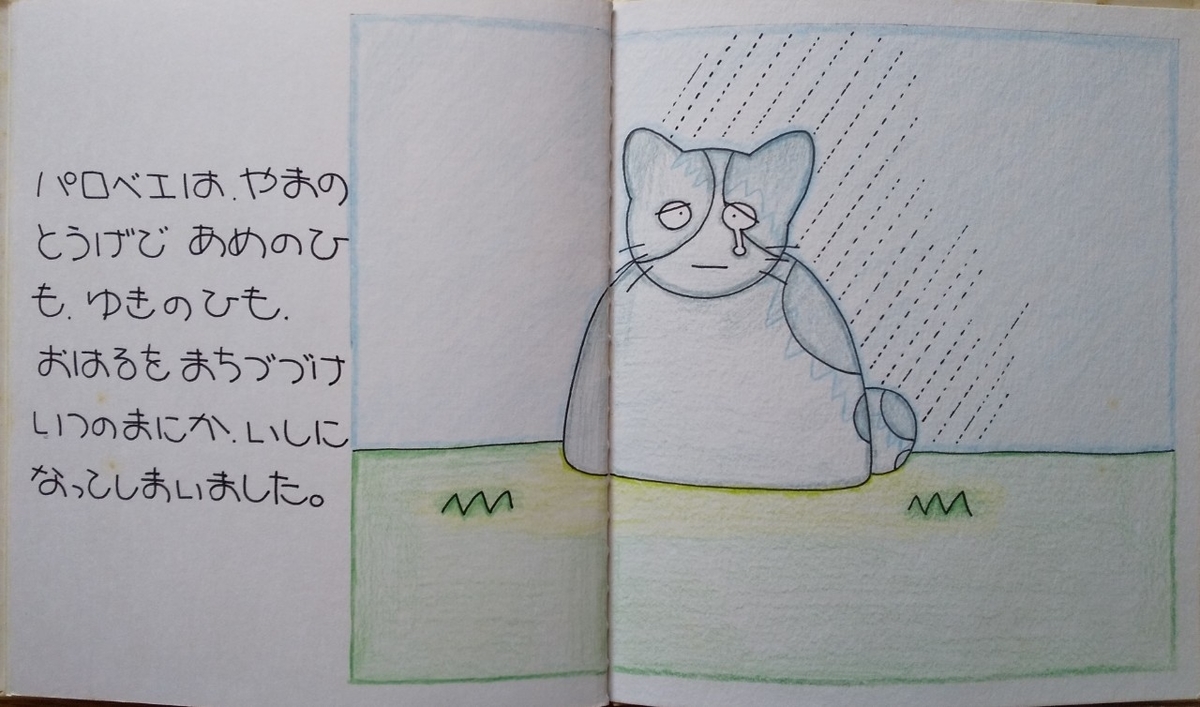 パロベエは、やまの
とうげで あめのひ
も、ゆきのひも、
おはるを まちづづけ
いつのまにか、いしに
なってしまいました。